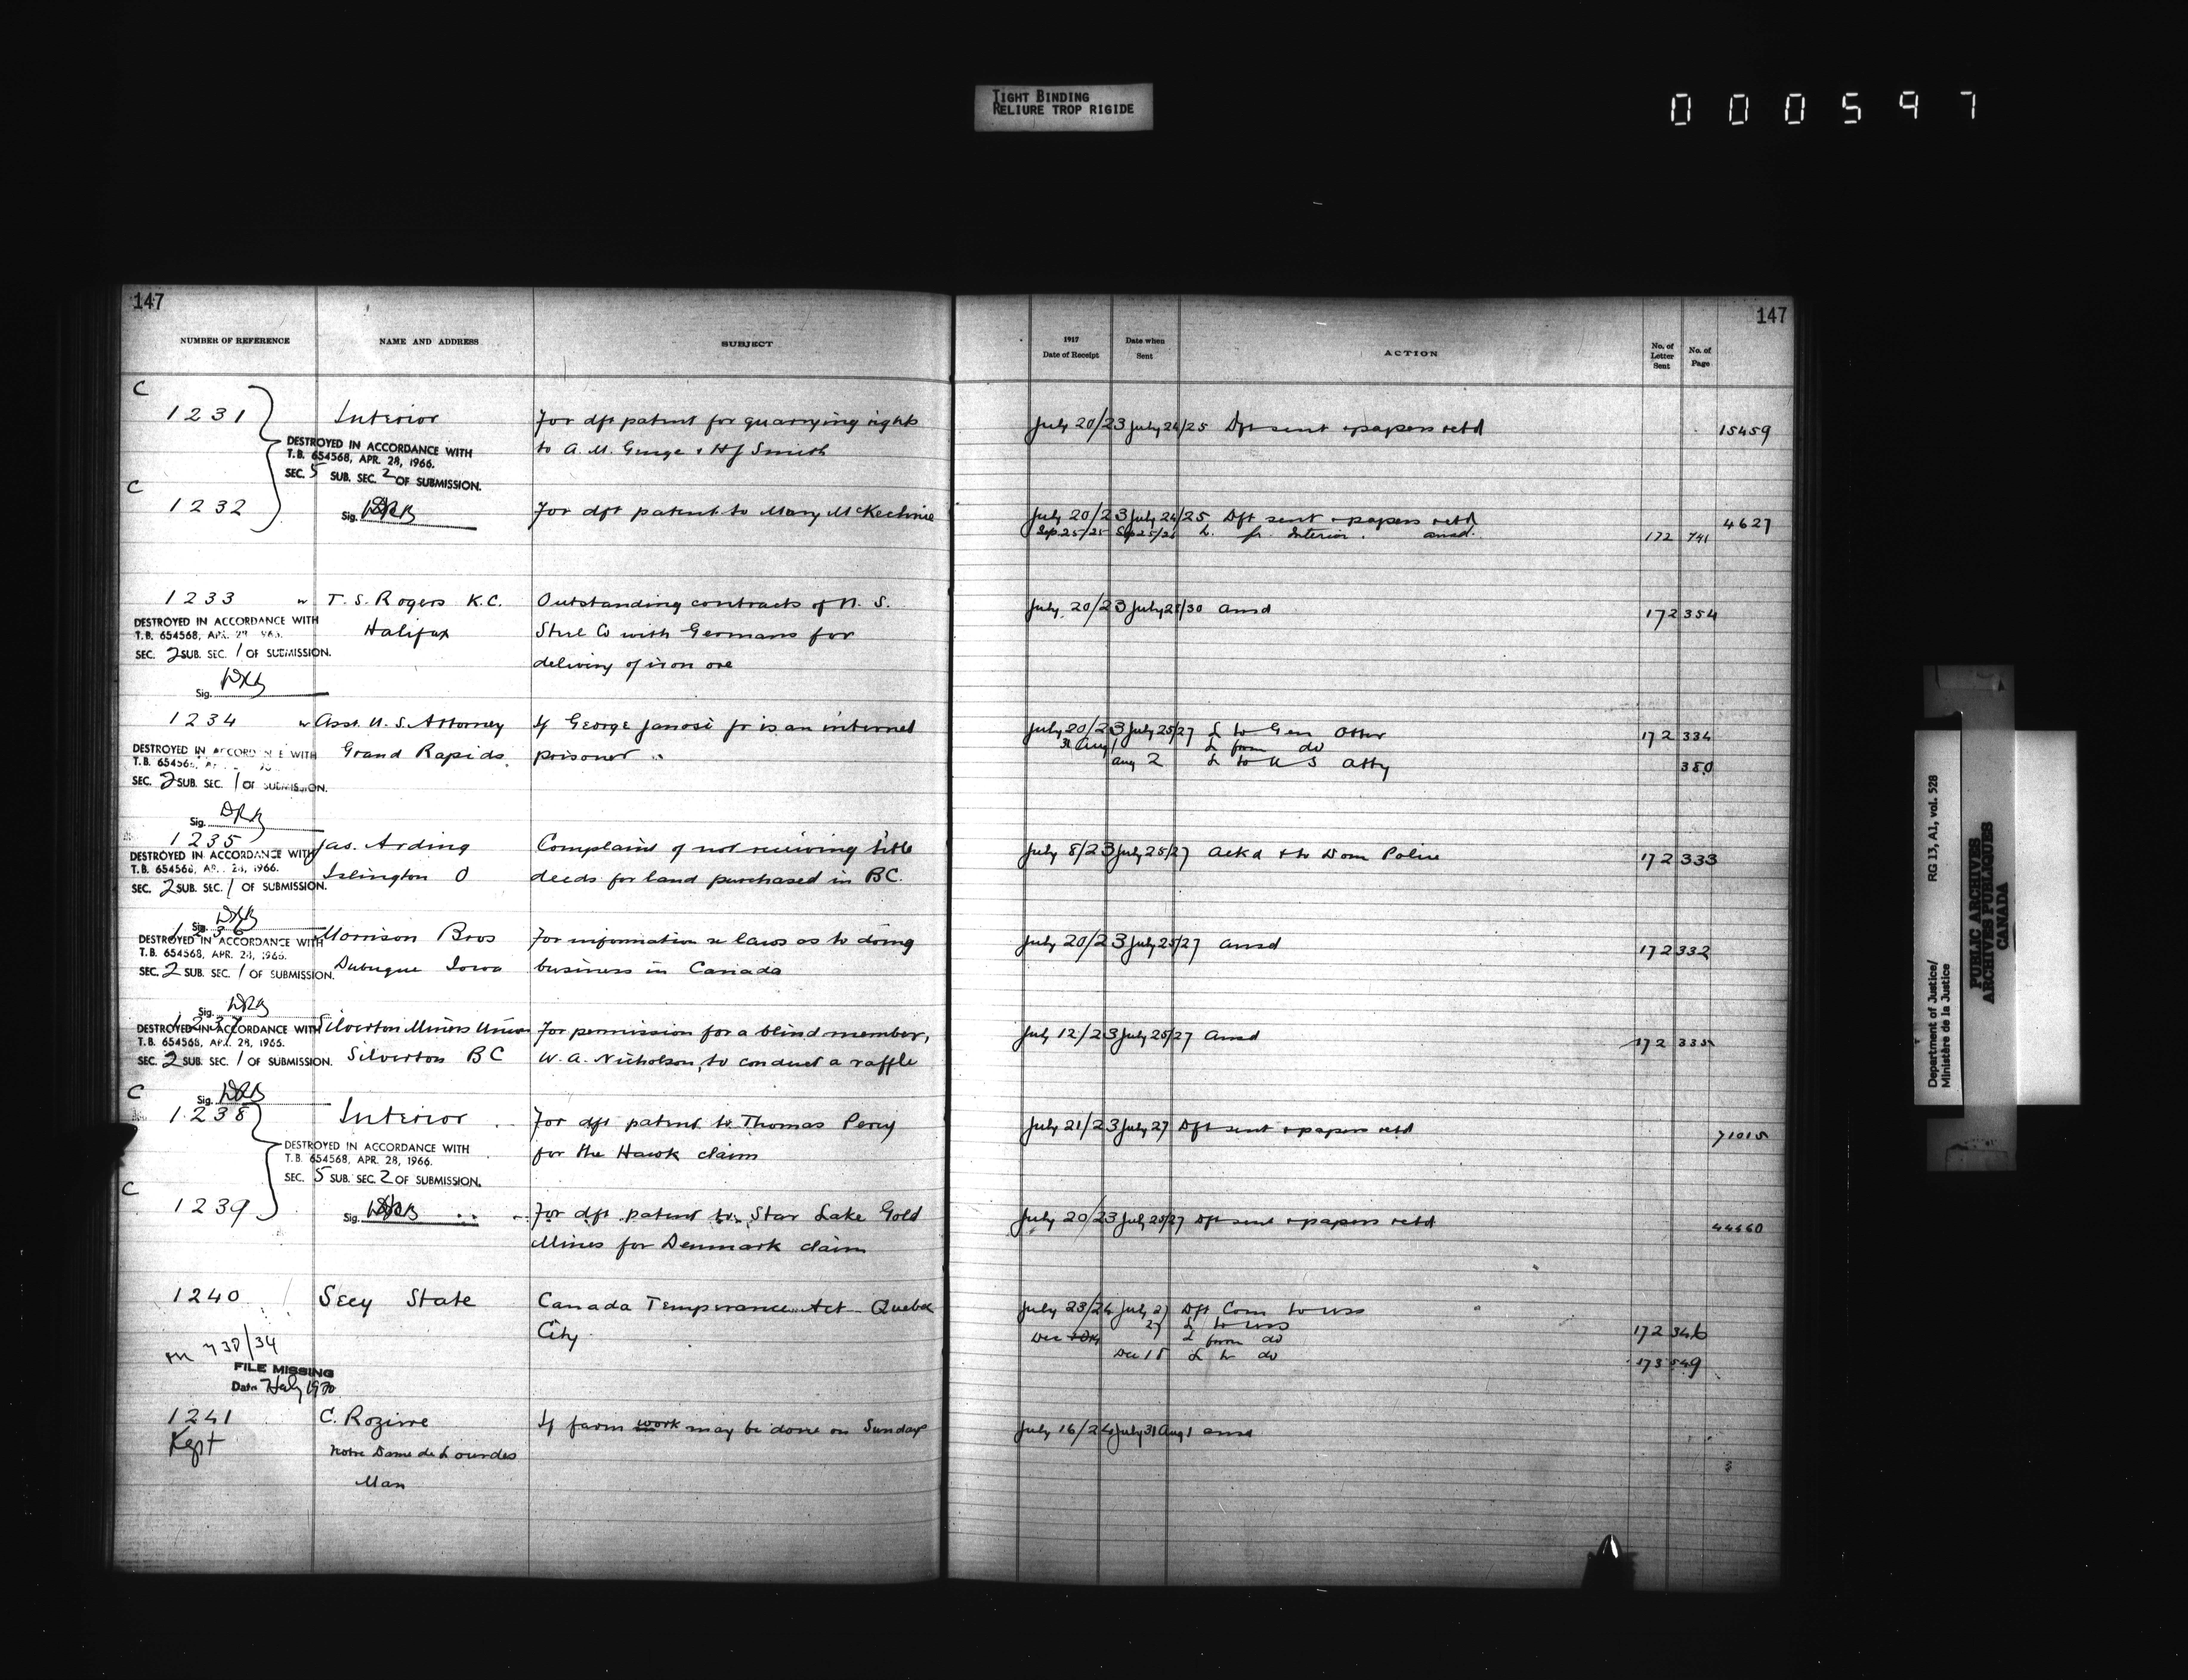 TIGHT BINDING
RELIURE TROP RIGIDE
000597
147
147
NUMBER OF REFERENCE NAME AND ADDRESS SUBJECT 1917 Date of Receipt Date when Sent ACTION No. of Letter Sent No. of Page
C
1231 Interior For dft patent for quarrying rights July 20/23 July 24/25 Dft sent + papers retd 15459
to A. M. George + H J Smith
DESTROYED IN ACCORDANCE WITH
T.B. 654568, APR. 28, 1966.
SEC. 5 SUB. SEC. 2 OF SUBMISSION.
C
1232 For dft patent to Mary McKechnie July 20/23 July 24/25 Dft sent + papers retd 4627
Sig. DRB
Sep 25/25 Sep 25/26 L. fr. Interior. ansd. 172 741
1233 w T. S. Rogers K.C. Outstanding contracts of N. S. July 20/23 July 28/30 ansd 172 354
Halifax Steel Co with Germans for
delivery of iron ore
DESTROYED IN ACCORDANCE WITH
T.B. 654568,
SEC. 2 SUB. SEC. 1 OF SUBMISSION.
Sig. DRB
1234 w Asst. U. S. Attorney If George Janosi jr is an interned July 20/23 July 25/27 L to Gen Otter 172 334
Grand Rapids. prisoner 31 Aug 1 L from do
Aug 2 L to U S Atty 380
DESTROYED IN
T.B.
SEC. 2 SUB. SEC. 1 OF SUBMISSION.
Sig. DRB
1235 Jas. Arding Complains of not receiving title July 8/23 July 25/27 Ackd + to Dom Police 172 333
Islington O deeds for land purchased in BC.
DESTROYED IN ACCORDANCE WITH
T.B. 654568, APR. 28, 1966.
SEC. 2 SUB. SEC. 1 OF SUBMISSION.
Sig. DRB
1236 Morrison Bros For information re laws as to doing July 20/23 July 25/27 ansd 172 332
Dubuque Iowa business in Canada
DESTROYED IN ACCORDANCE WITH
T.B. 654568, APR. 28, 1966.
SEC. 2 SUB. SEC. 1 OF SUBMISSION.
Sig. DRB
1237 Silverton Miners Union For permission for a blind member, July 12/23 July 25/27 Ansd 172 335
Silverton BC W. A. Nicholson, to conduct a raffle
DESTROYED IN ACCORDANCE WITH
T.B. 654568, APR. 28, 1966.
SEC. 2 SUB. SEC. 1 OF SUBMISSION.
Sig. DRB
C
1238 Interior For dft patent to Thomas Percy July 21/23 July 27 Dft sent + papers retd 71015
for the Hawk claim
DESTROYED IN ACCORDANCE WITH
T.B. 654568, APR. 28, 1966.
SEC. 5 SUB. SEC. 2 OF SUBMISSION.
C
1239 For dft patent to Star Lake Gold July 20/23 July 25/27 Dft sent + papers retd 44660
Sig. DRB
Mines for Denmark claim
1240 Secy State Canada Temperance Act Quebec July 23/24 July 27 Dft Com to USS
City 27 L to USS 172 346
Dec L from do
Dec 15 L to do 173 549
738/34
FILE MISSING
Date July 1970
1241 C. Rozirre If farm work may be done on Sundays July 16/24 July 31 Aug 1 ansd
Kept
Notre Dame de Lourdes
Man
Department of Justice/
Ministère de la Justice
RG 13, A1, vol. 528
PUBLIC ARCHIVES
ARCHIVES PUBLIQUES
CANADA